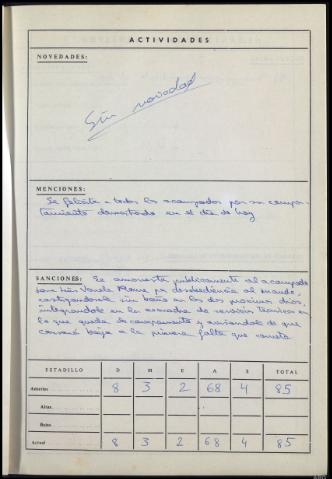 ACTIVIDADES
NOVEDADES:
Sin novedad
MENCIONES:
Se felicita a todos los acampados por su compor-
tamiento demostrado en el día de hoy
SANCIONES: Se amonesta públicamente al acampado
José Luis Varela por desobediencia al mando,
castigandole sin baño en los dos proximos dias,
integrandole en la escuadra de servicios técnicos en
lo que queda de campamento y avisandole de que
causará baja a la primera falta que cometa
ESTADILLO D M E A S TOTAL
Anterior 8 3 2 68 4 85
Altas
Bajas
Actual 8 3 2 68 4 85